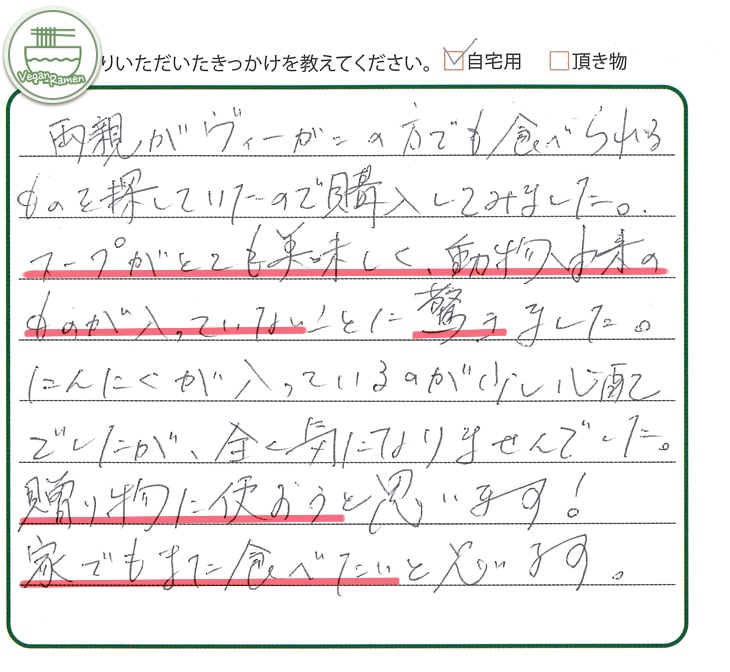 Vegan Ramen
りいただいたきっかけを教えてください。 自宅用 頂き物
両親がヴィーガンの方でも食べられる
ものを探していたので購入してみました。
スープがとても美味しく、動物由来の
ものが入っていないことに驚きました。
にんにくが入っているのが少し心配
でしたが、全く気になりませんでした。
贈り物に使おうと思います！
家でもまた食べたいと思います。